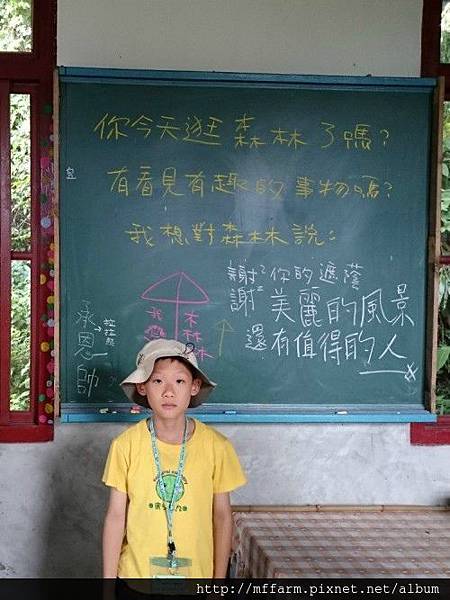 你今天逛森林了嗎?
有看見有趣的事物嗎?
我想對森林說:
謝謝你的遮蔭
謝謝美麗的風景
還有值得的人
我
森林
承恩
帥
http://mffarm.pixnet.net/album